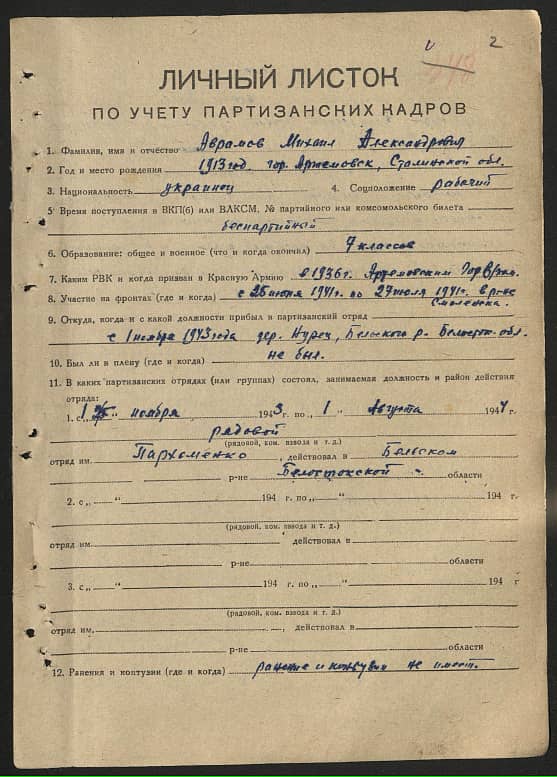 2
ЛИЧНЫЙ ЛИСТОК
ПО УЧЕТУ ПАРТИЗАНСКИХ КАДРОВ
1. Фамилия, имя и отчество Аврамов Михаил Александрович
2. Год и место рождения 1913 год. гор. Артемовск, Сталинской обл.
3. Национальность украинец 4. Соцположение рабочий
5. Время поступления в ВКП(б) или ВЛКСМ, № партийного или комсомольского билета
беспартийный
6. Образование: общее и военное (что и когда окончил) 7 классов
7. Каким РВК и когда призван в Красную Армию в 1936 г. Артемовским Гор
8. Участие на фронтах (где и когда) с 25 июня 1941 г. по 27 июля 1941 г. в р-не
Смоленска.
9. Откуда, когда и с какой должности прибыл в партизанский отряд
с 1 ноября 1943 года дер. Нурец, Бельского р. Белосток. обл.
10. Был ли в плену (где и когда) не был.
11. В каких партизанских отрядах (или группах) состоял, занимаемая должность и район действия
отряда:
1. с „1" ноября 1943 г. по „1" Августа 1944 г.
рядовой
(рядовой, ком. взвода и т. д.)
отряд им. Пархоменко, действовал в Бельском
р-не Белостокской области
2. с „ " 194 г. по „ " 194 г.
(рядовой, ком. взвода и т. д.)
отряд им. действовал в
р-не области
3. с „ " 194 г. по „ " 194 г
(рядовой, ком. взвода и т. д.)
отряд им. , действовал в
р-не области
12. Ранения и контузии (где и когда) ранение и контузии не имеет.